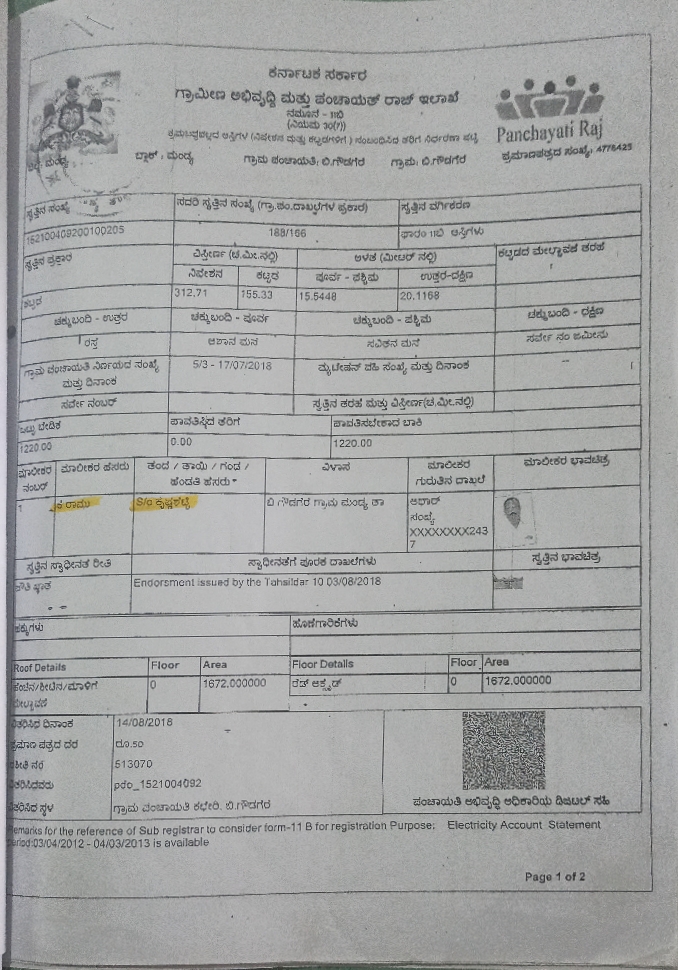 ಕರ್ನಾಟಕ ಸರ್ಕಾರ
ಗ್ರಾಮೀಣ ಅಭಿವೃದ್ಧಿ ಮತ್ತು ಪಂಚಾಯತ್ ರಾಜ್ ಇಲಾಖೆ
ನಮೂನೆ - 11ಬಿ
(ನಿಯಮ 30(7))
Panchayati Raj
ಬ್ಲಾಕ್ : ಮಂಡ್ಯ ಗ್ರಾಮ ಪಂಚಾಯಿತಿ: ಬಿ.ಗೌಡಗೆರೆ ಗ್ರಾಮ: ಬಿ.ಗೌಡಗೆರೆ ಪ್ರಮಾಣಪತ್ರದ ಸಂಖ್ಯೆ: 4778425
ಸ್ವತ್ತಿನ ಸಂಖ್ಯೆ ಸದರಿ ಸ್ವತ್ತಿನ ಸಂಖ್ಯೆ (ಗ್ರಾ.ಪಂ.ದಾಖಲೆಗಳ ಪ್ರಕಾರ) ಸ್ವತ್ತಿನ ವರ್ಗೀಕರಣ
152100409200100205 188/166 ಫಾರಂ 11ಬಿ ಆಸ್ತಿಗಳು
ಸ್ವತ್ತಿನ ಪ್ರಕಾರ ವಿಸ್ತೀರ್ಣ (ಚ.ಮೀ.ನಲ್ಲಿ) ಅಳತೆ (ಮೀಟರ್ ನಲ್ಲಿ) ಕಟ್ಟಡದ ಮೇಲ್ಛಾವಣಿ ತರಹೆ
ನಿವೇಶನ ಕಟ್ಟಡ ಪೂರ್ವ - ಪಶ್ಚಿಮ ಉತ್ತರ-ದಕ್ಷಿಣ
ಕಟ್ಟಡ 312.71 155.33 15.5448 20.1168
ಚಕ್ಕುಬಂದಿ - ಉತ್ತರ ಚಕ್ಕುಬಂದಿ - ಪೂರ್ವ ಚಕ್ಕುಬಂದಿ - ಪಶ್ಚಿಮ ಚಕ್ಕುಬಂದಿ - ದಕ್ಷಿಣ
ರಸ್ತೆ ಮನೆ ಮನೆ ಸರ್ವೇ ನಂ ಜಮೀನು
ಗ್ರಾಮ ಪಂಚಾಯಿತಿ ನಿರ್ಣಯದ ಸಂಖ್ಯೆ 5/3 - 17/07/2018 ಮ್ಯುಟೇಷನ್ ವಹಿ ಸಂಖ್ಯೆ ಮತ್ತು ದಿನಾಂಕ –
ಮತ್ತು ದಿನಾಂಕ
ಸರ್ವೆ ನಂಬರ್ ಸ್ವತ್ತಿನ ತರಹೆ ಮತ್ತು ವಿಸ್ತೀರ್ಣ(ಚ.ಮೀ.ನಲ್ಲಿ)
ಒಟ್ಟು ಬೇಡಿಕೆ ಪಾವತಿಸಿದ ತೆರಿಗೆ ಪಾವತಿಸಬೇಕಾದ ಬಾಕಿ
1220.00 0.00 1220.00
ಮಾಲೀಕರ ಮಾಲೀಕರ ಹೆಸರು ತಂದೆ / ತಾಯಿ / ಗಂಡ / ವಿಳಾಸ ಮಾಲೀಕರ ಮಾಲೀಕರ ಭಾವಚಿತ್ರ
ನಂಬರ್ ಹೆಂಡತಿ ಹೆಸರು * ಗುರುತಿನ ದಾಖಲೆ
1 ಕೆ ರಾಮು S/o ಕೃಷ್ಣಶೆಟ್ಟಿ ಬಿ ಗೌಡಗೆರೆ ಗ್ರಾಮ ಮಂಡ್ಯ ತಾ ಆಧಾರ್
ಸಂಖ್ಯೆ
XXXXXXXX243
7
ಸ್ವತ್ತಿನ ಸ್ವಾಧೀನತೆ ರೀತಿ ಸ್ವಾಧೀನತೆಗೆ ಪೂರಕ ದಾಖಲೆಗಳು ಸ್ವತ್ತಿನ ಭಾವಚಿತ್ರ
Endorsment issued by the Tahsildar 10 03/08/2018
ಹಕ್ಕುಗಳು ಹೊಣೆಗಾರಿಕೆಗಳು
Roof Details Floor Area Floor Details Floor Area
0 1672.000000 ರೆಡ್ ಆಕ್ಸೈಡ್ 0 1672.000000
ವಿತರಿಸಿದ ದಿನಾಂಕ 14/08/2018
ಪ್ರಮಾಣ ಪತ್ರದ ದರ ರೂ.50
ರಶೀತಿ ನರ 513070
ವಿತರಿಸಿದವರು pdo_1521004092
ವಿತರಿಸಿದ ಸ್ಥಳ ಗ್ರಾಮ ಪಂಚಾಯಿತಿ ಕಛೇರಿ. ಬಿ.ಗೌಡಗೆರೆ ಪಂಚಾಯಿತಿ ಅಭಿವೃದ್ಧಿ ಅಧಿಕಾರಿಯ ಡಿಜಿಟಲ್ ಸಹಿ
emarks for the reference of Sub registrar to consider form-11 B for registration Purpose: Electricity Account Statement
eriod:03/04/2012 - 04/03/2013 is available
Page 1 of 2